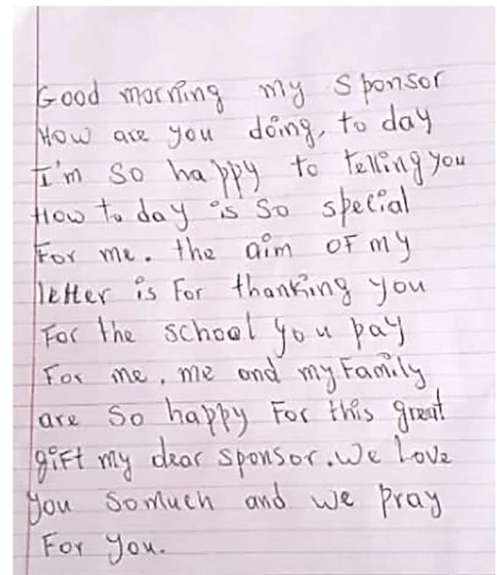 Good morning my sponsor
How are you doing, to day
I'm so happy to telling you
How to day is so special
For me. the aim OF my
letter is For thanking you
For the school you pay
For me, me and my Family
are so happy For this great
gift my dear sponsor. We Love
you somuch and we pray
For you.